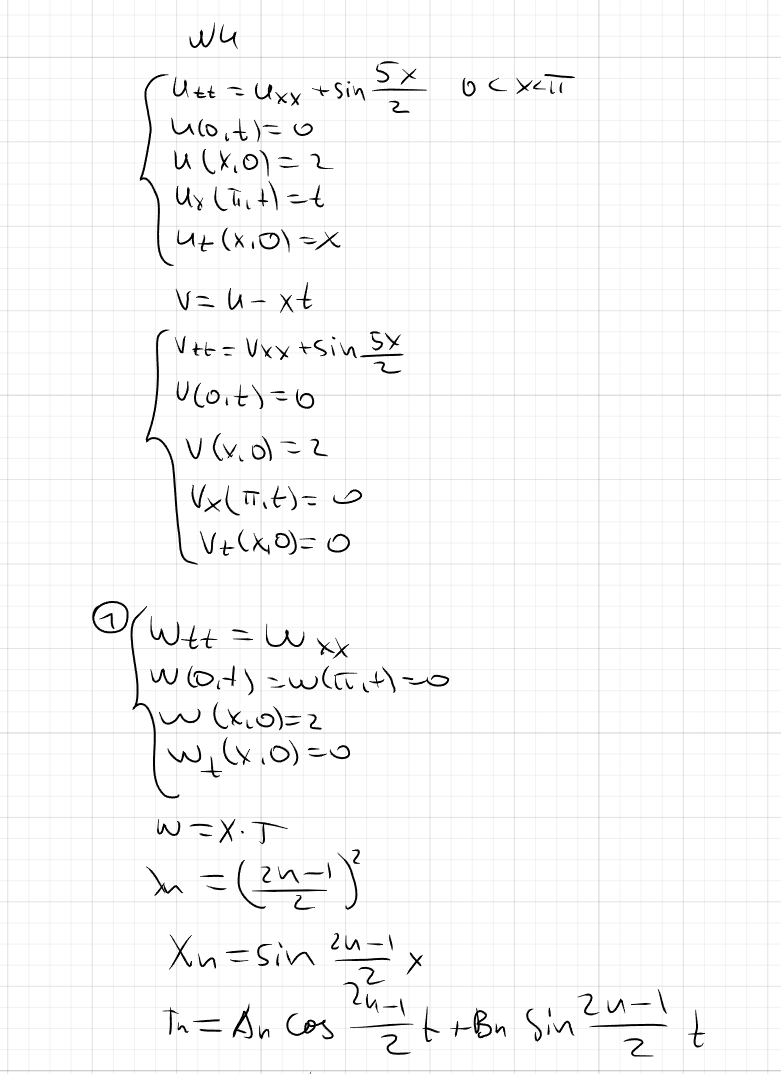 №4
u_tt = u_xx + sin 5x/2   0 < x < π
u(0,t) = 0
u(x,0) = 2
u_x(π,t) = t
u_t(x,0) = x
v = u - xt
v_tt = v_xx + sin 5x/2
v(0,t) = 0
v(x,0) = 2
v_x(π,t) = 0
v_t(x,0) = 0
① w_tt = w_xx
w(0,t) = w(π,t) = 0
w(x,0) = 2
w_t(x,0) = 0
w = X · T
λn = ((2n-1)/2)^2
Xn = sin (2n-1)/2 x
Tn = An cos (2n-1)/2 t + Bn sin (2n-1)/2 t